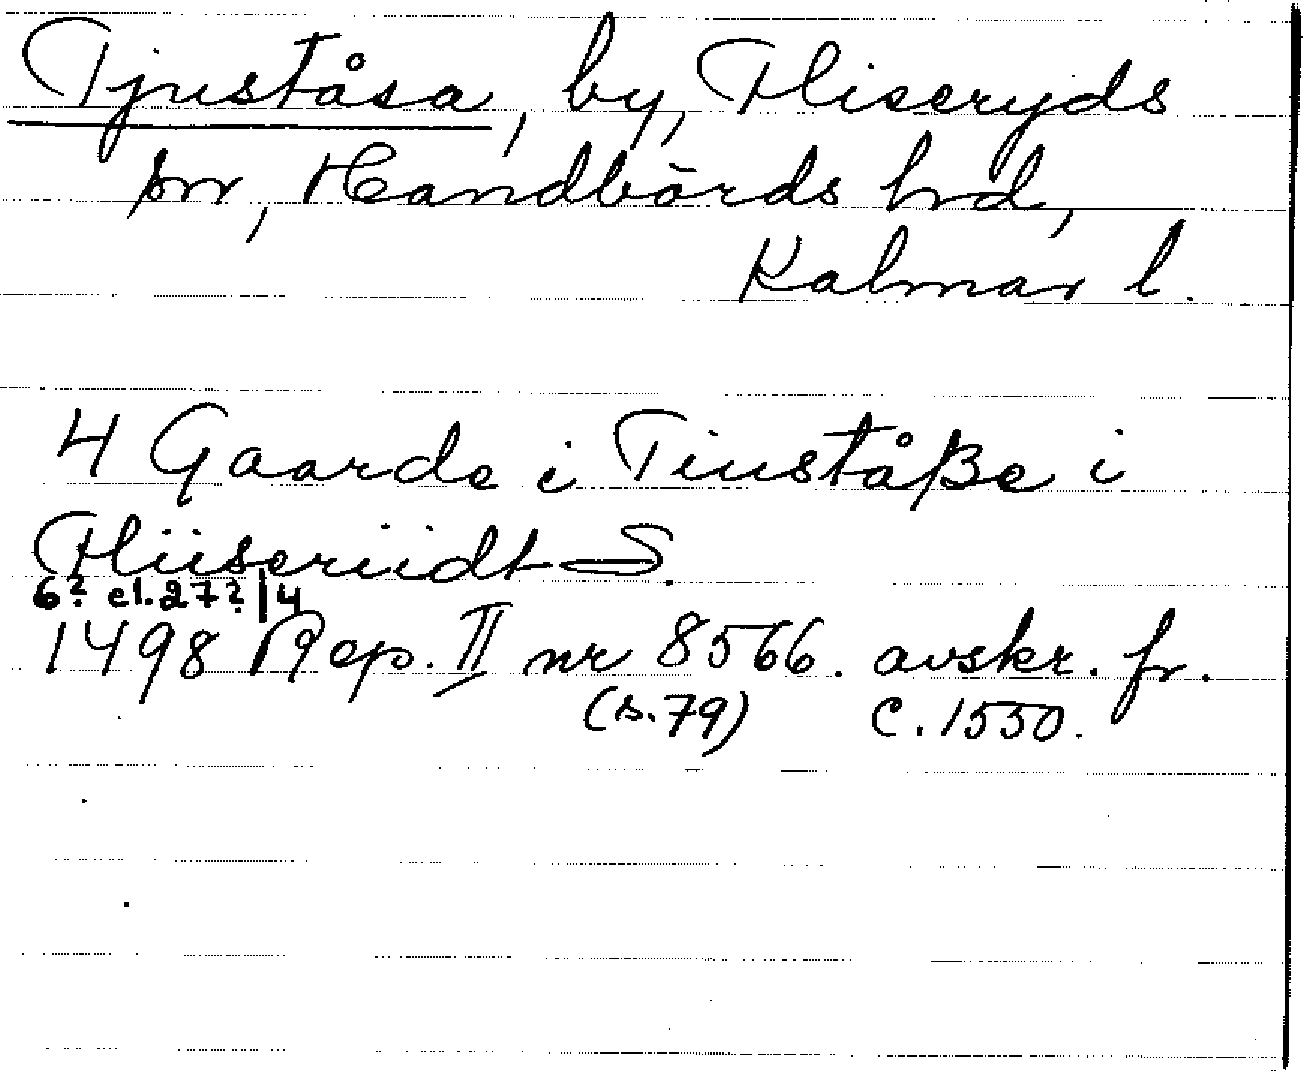 Tjuståsa, by, Fliseryds
sn, Handbörds hrd,
Kalmar l.
4 Gaarde i Tiuståße i
Fliiseriidt S.
6? el. 27? /4
1498 Rep. II nr 8566. avskr. fr.
(s. 79) c. 1550.